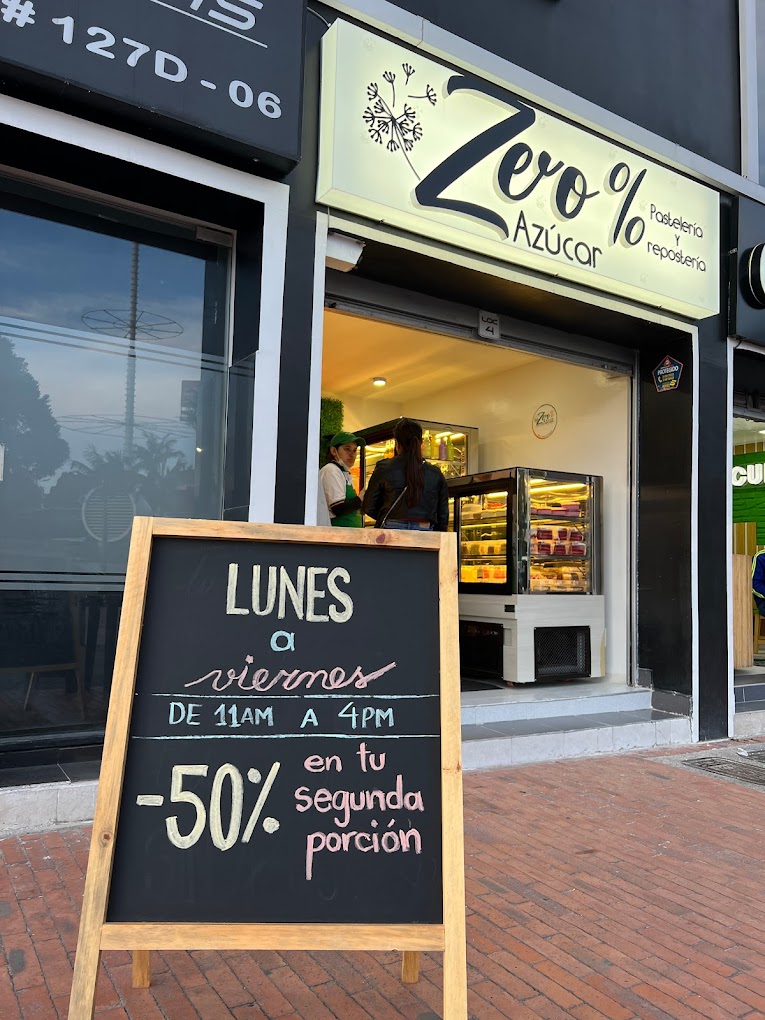 # 127D - 06
Zero %
Azúcar
Pastelería
y
repostería
LOC
4
LUNES
a
viernes
DE 11AM A 4PM
-50% en tu
segunda
porción